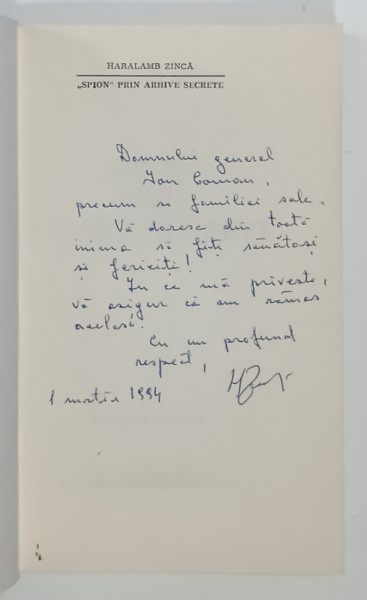 HARALAMB ZINCĂ
„SPION” PRIN ARHIVE SECRETE
Domnului general
Ion Coman,
precum și familiei sale.
Vă doresc din toată
inima să fiți sănătoși
și fericiți!
În ce mă privește,
vă asigur că am rămas
același.
Cu un profund
respect,
1 martie 1994